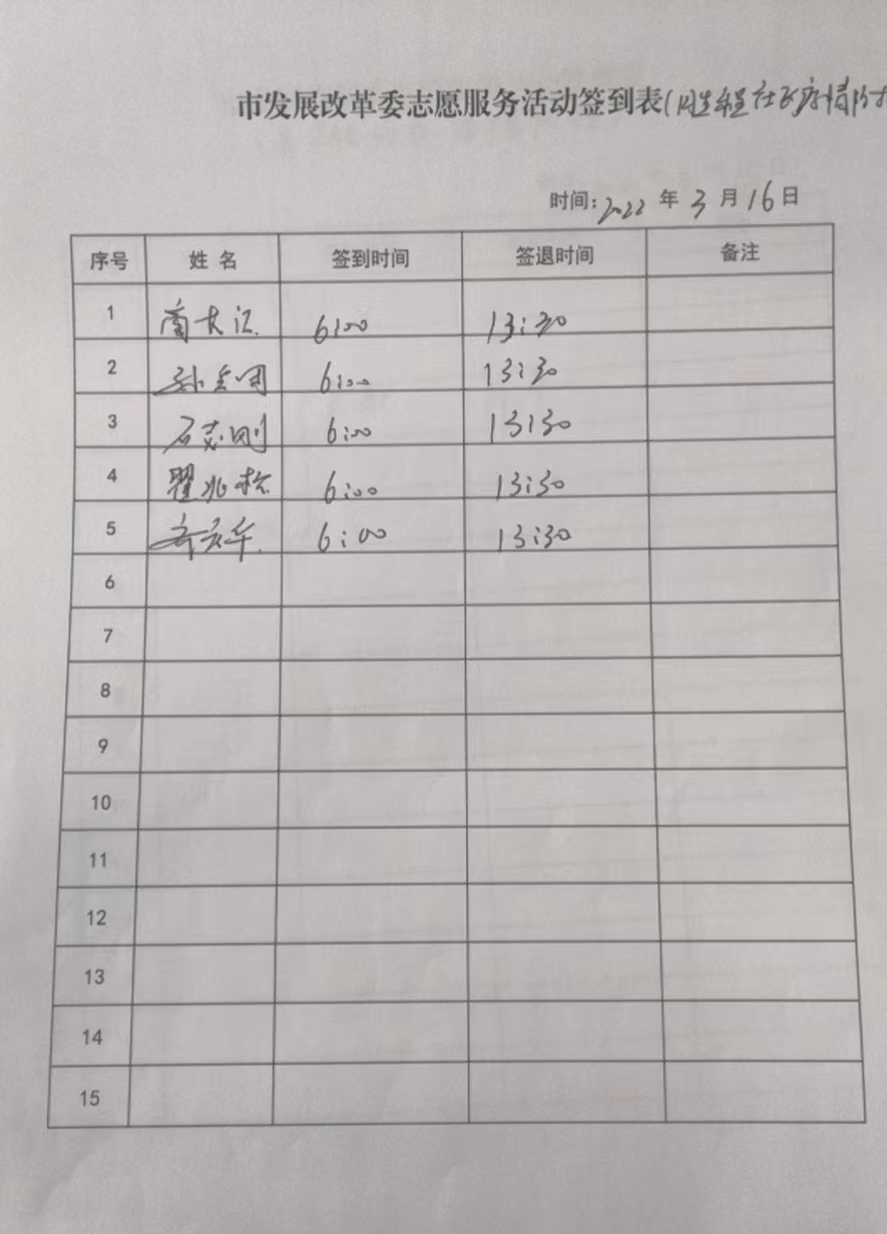 市发展改革委志愿服务活动签到表(
社区疫情防
时间:2022 年 3 月 16 日
序号 姓 名 签到时间 签退时间 备注
1 6:00 13:30
2 6:00 13:30
3 石志刚 6:00 13:30
4 翟兆松 6:00 13:30
5 6:00 13:30
6
7
8
9
10
11
12
13
14
15